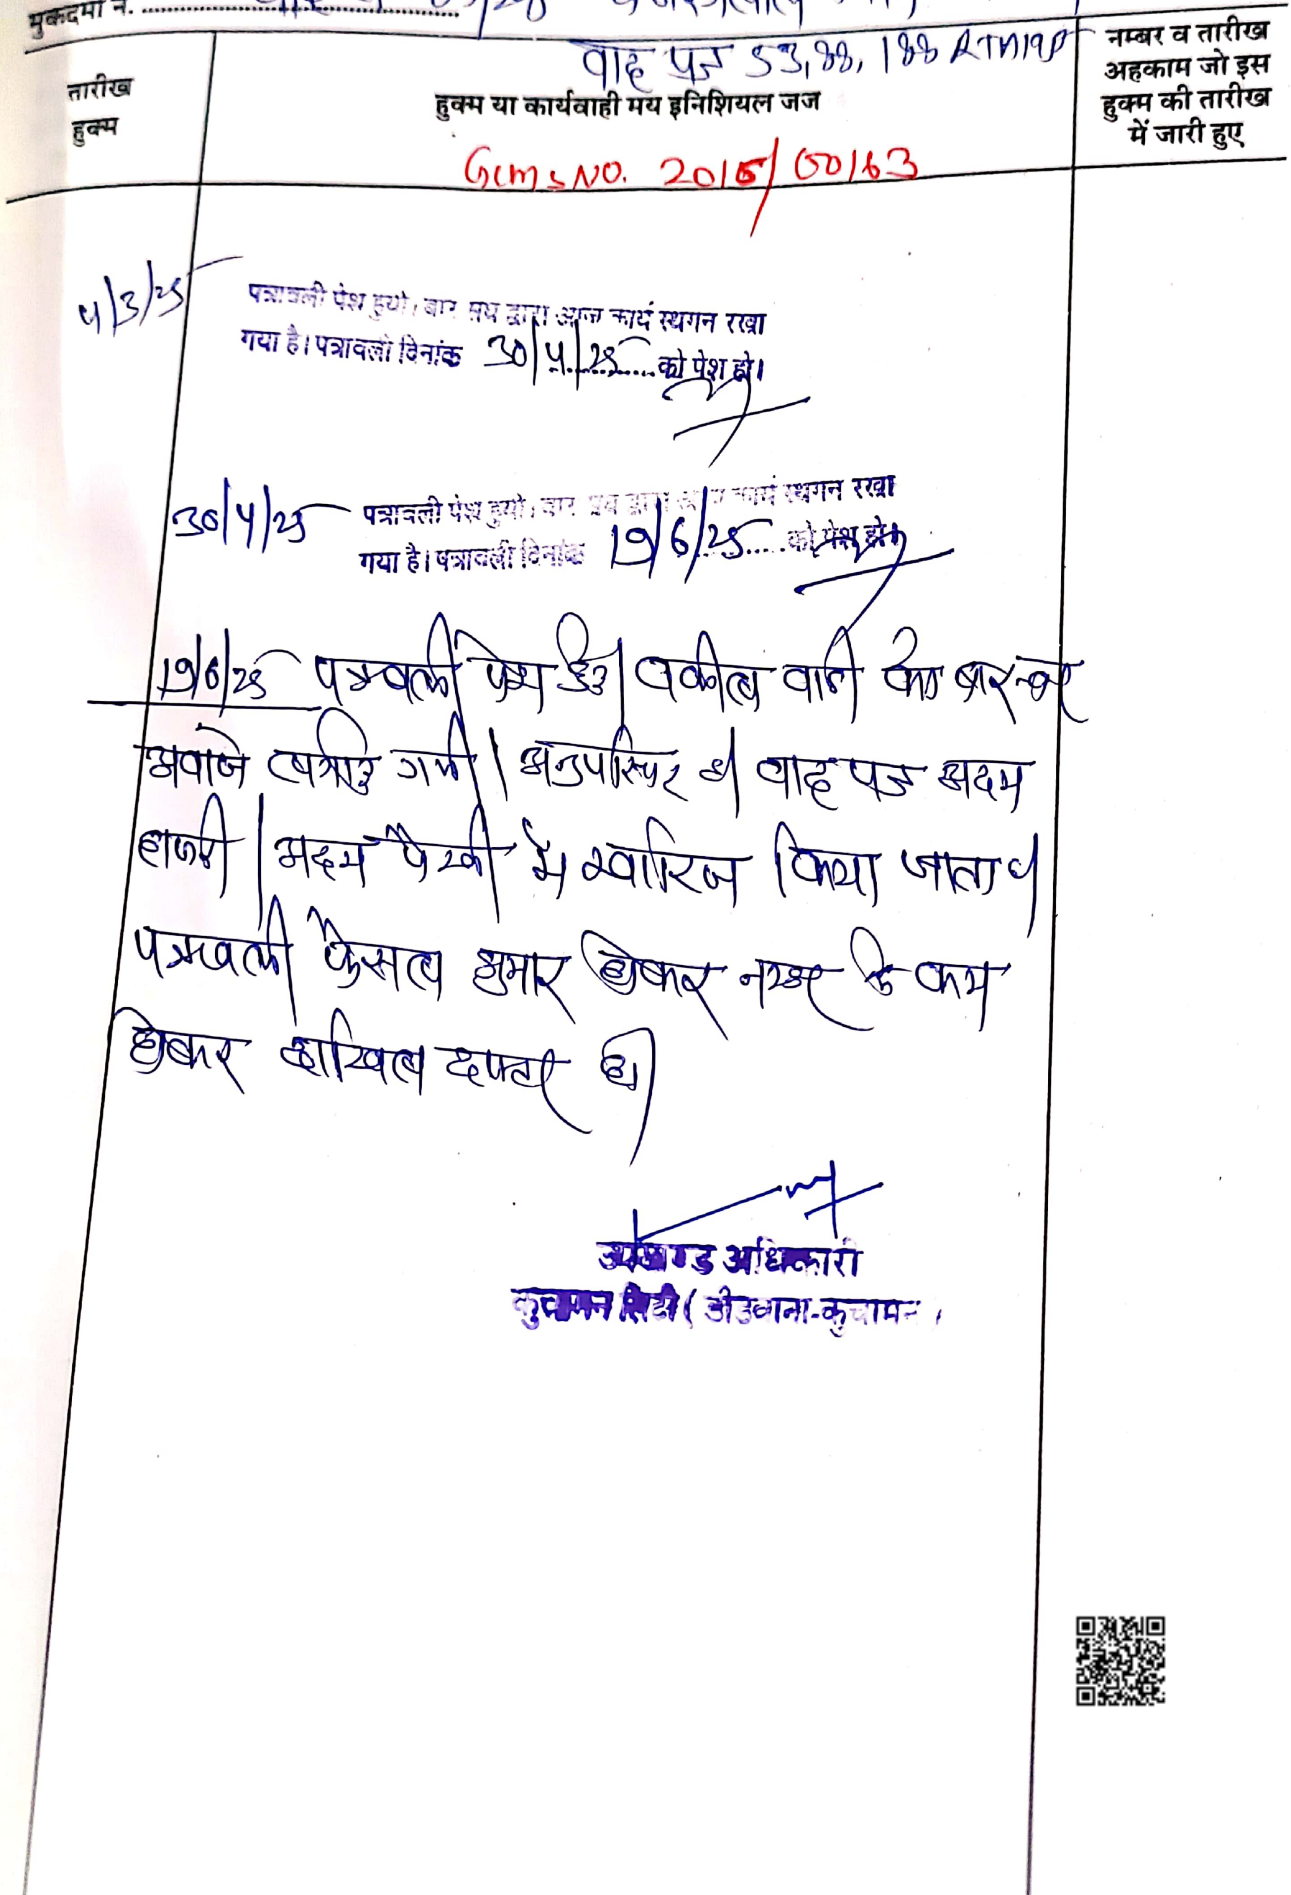 मुकदमा नं.
वाद पत्र 53, 88, 188 RTA
तारीख हुक्म
हुक्म या कार्यवाही मय इनिशियल जज
नम्बर व तारीख
अहकाम जो इस
हुक्म की तारीख
में जारी हुए
GCMS NO. 2015/00163
4/3/25
पत्रावली पेश हुयी। बार संघ द्वारा आज कार्य स्थगन रखा
गया है। पत्रावली दिनांक 30/4/25 को पेश हो।
30/4/25 पत्रावली पेश हुयी। बार संघ द्वारा आज कार्य स्थगन रखा
गया है। पत्रावली दिनांक 19/6/25 को पेश हो।
19/6/25 पत्रावली पेश हुई। वकील वादी को बार-बार
अवाजे लगाई गयी। अनुपस्थित है। वाद पत्र अदम
हाजरी/अदम पैरवी में खारिज किया जाता है।
पत्रावली फैसल शुमार होकर नम्बर से कम
होकर दाखिल दफ्तर हो।
उपखण्ड अधिकारी
कुचामन सिटी (डीडवाना-कुचामन)